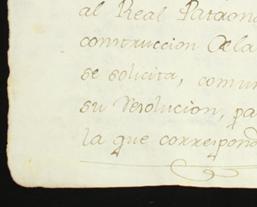 al Real Pataon
construccion de la
se solicita, comu
su Resolucion, pa
la que correspon